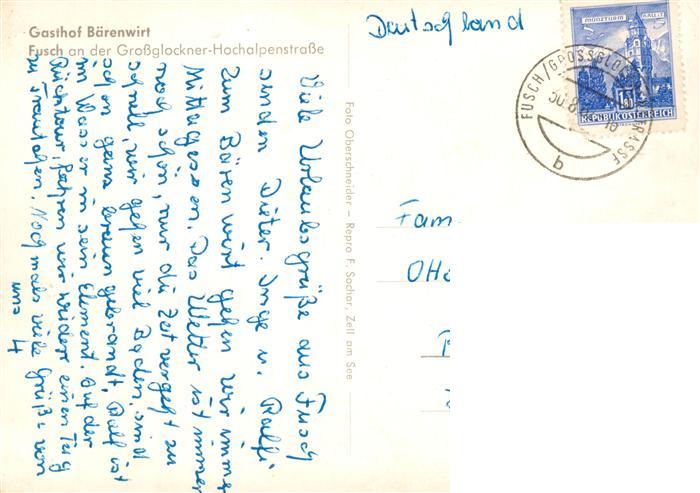 Gasthof Bärenwirt
Fusch an der Großglockner-Hochalpenstraße
Deutschland
MÜNZTURM HALL i.T.
REPUBLIK ÖSTERREICH
FUSCH/GROSSGLOCKNERSTRASSE
b
Viele Urlaubsgrüße aus Fusch
senden Dieter. Inge u. Ralfi
Zum Bärenwirt gehen wir immer
Mittagessen. Das Wetter ist immer
noch schön, nur die Zeit vergeht zu
schnell, wir gehen viel Baden, sind
schon ganz braun gebrandt, Ralf ist
im Wasser in sein Element. Auf der
Rücktour, fahren wir wieder einen Tag
zu Noch mals viele Grüße von
uns 4
Foto Oberschneider – Repro F. Sochor, Zell am See
Fam